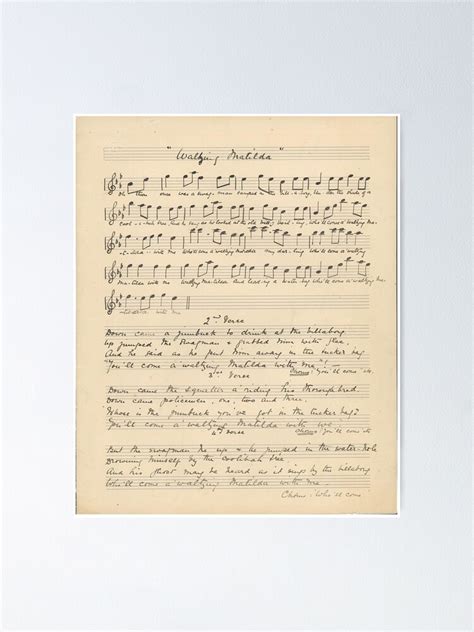 "Waltzing Matilda"
Oh there once was a swag-man camped in the
Cool-i-bah tree, And he sang as he looked at the old billy boil-ing, Who'll come a waltzing Ma-
tilda with me Who'll come a waltzing Matilda my dar-ling Who'll come a waltzing
Matilda with me Waltzing Matilda And lead-ing a water bag Who'll come a waltzing Ma-
tilda with me
2nd Verse
Down came a jumbuck to drink at the billabong
Up jumped the swagman & grabbed him with glee,
And he said as he put him away in the tucker bag
"You'll come a waltzing Matilda with me"!
Chorus: You'll come
3rd Verse
Down came the squatter a riding his thoroughbred
Down came policemen, one, two and three.
Whose is the jumbuck you've got in the tucker bag?
You'll come a waltzing Matilda with we
Chorus: You'll come
4th Verse
But the swagman he up & he jumped in the water-hole
Drowning himself by the Coolibah tree
And his ghost may be heard as it sings by the billabong
Who'll come a waltzing Matilda with me.
Chorus: Who'll come